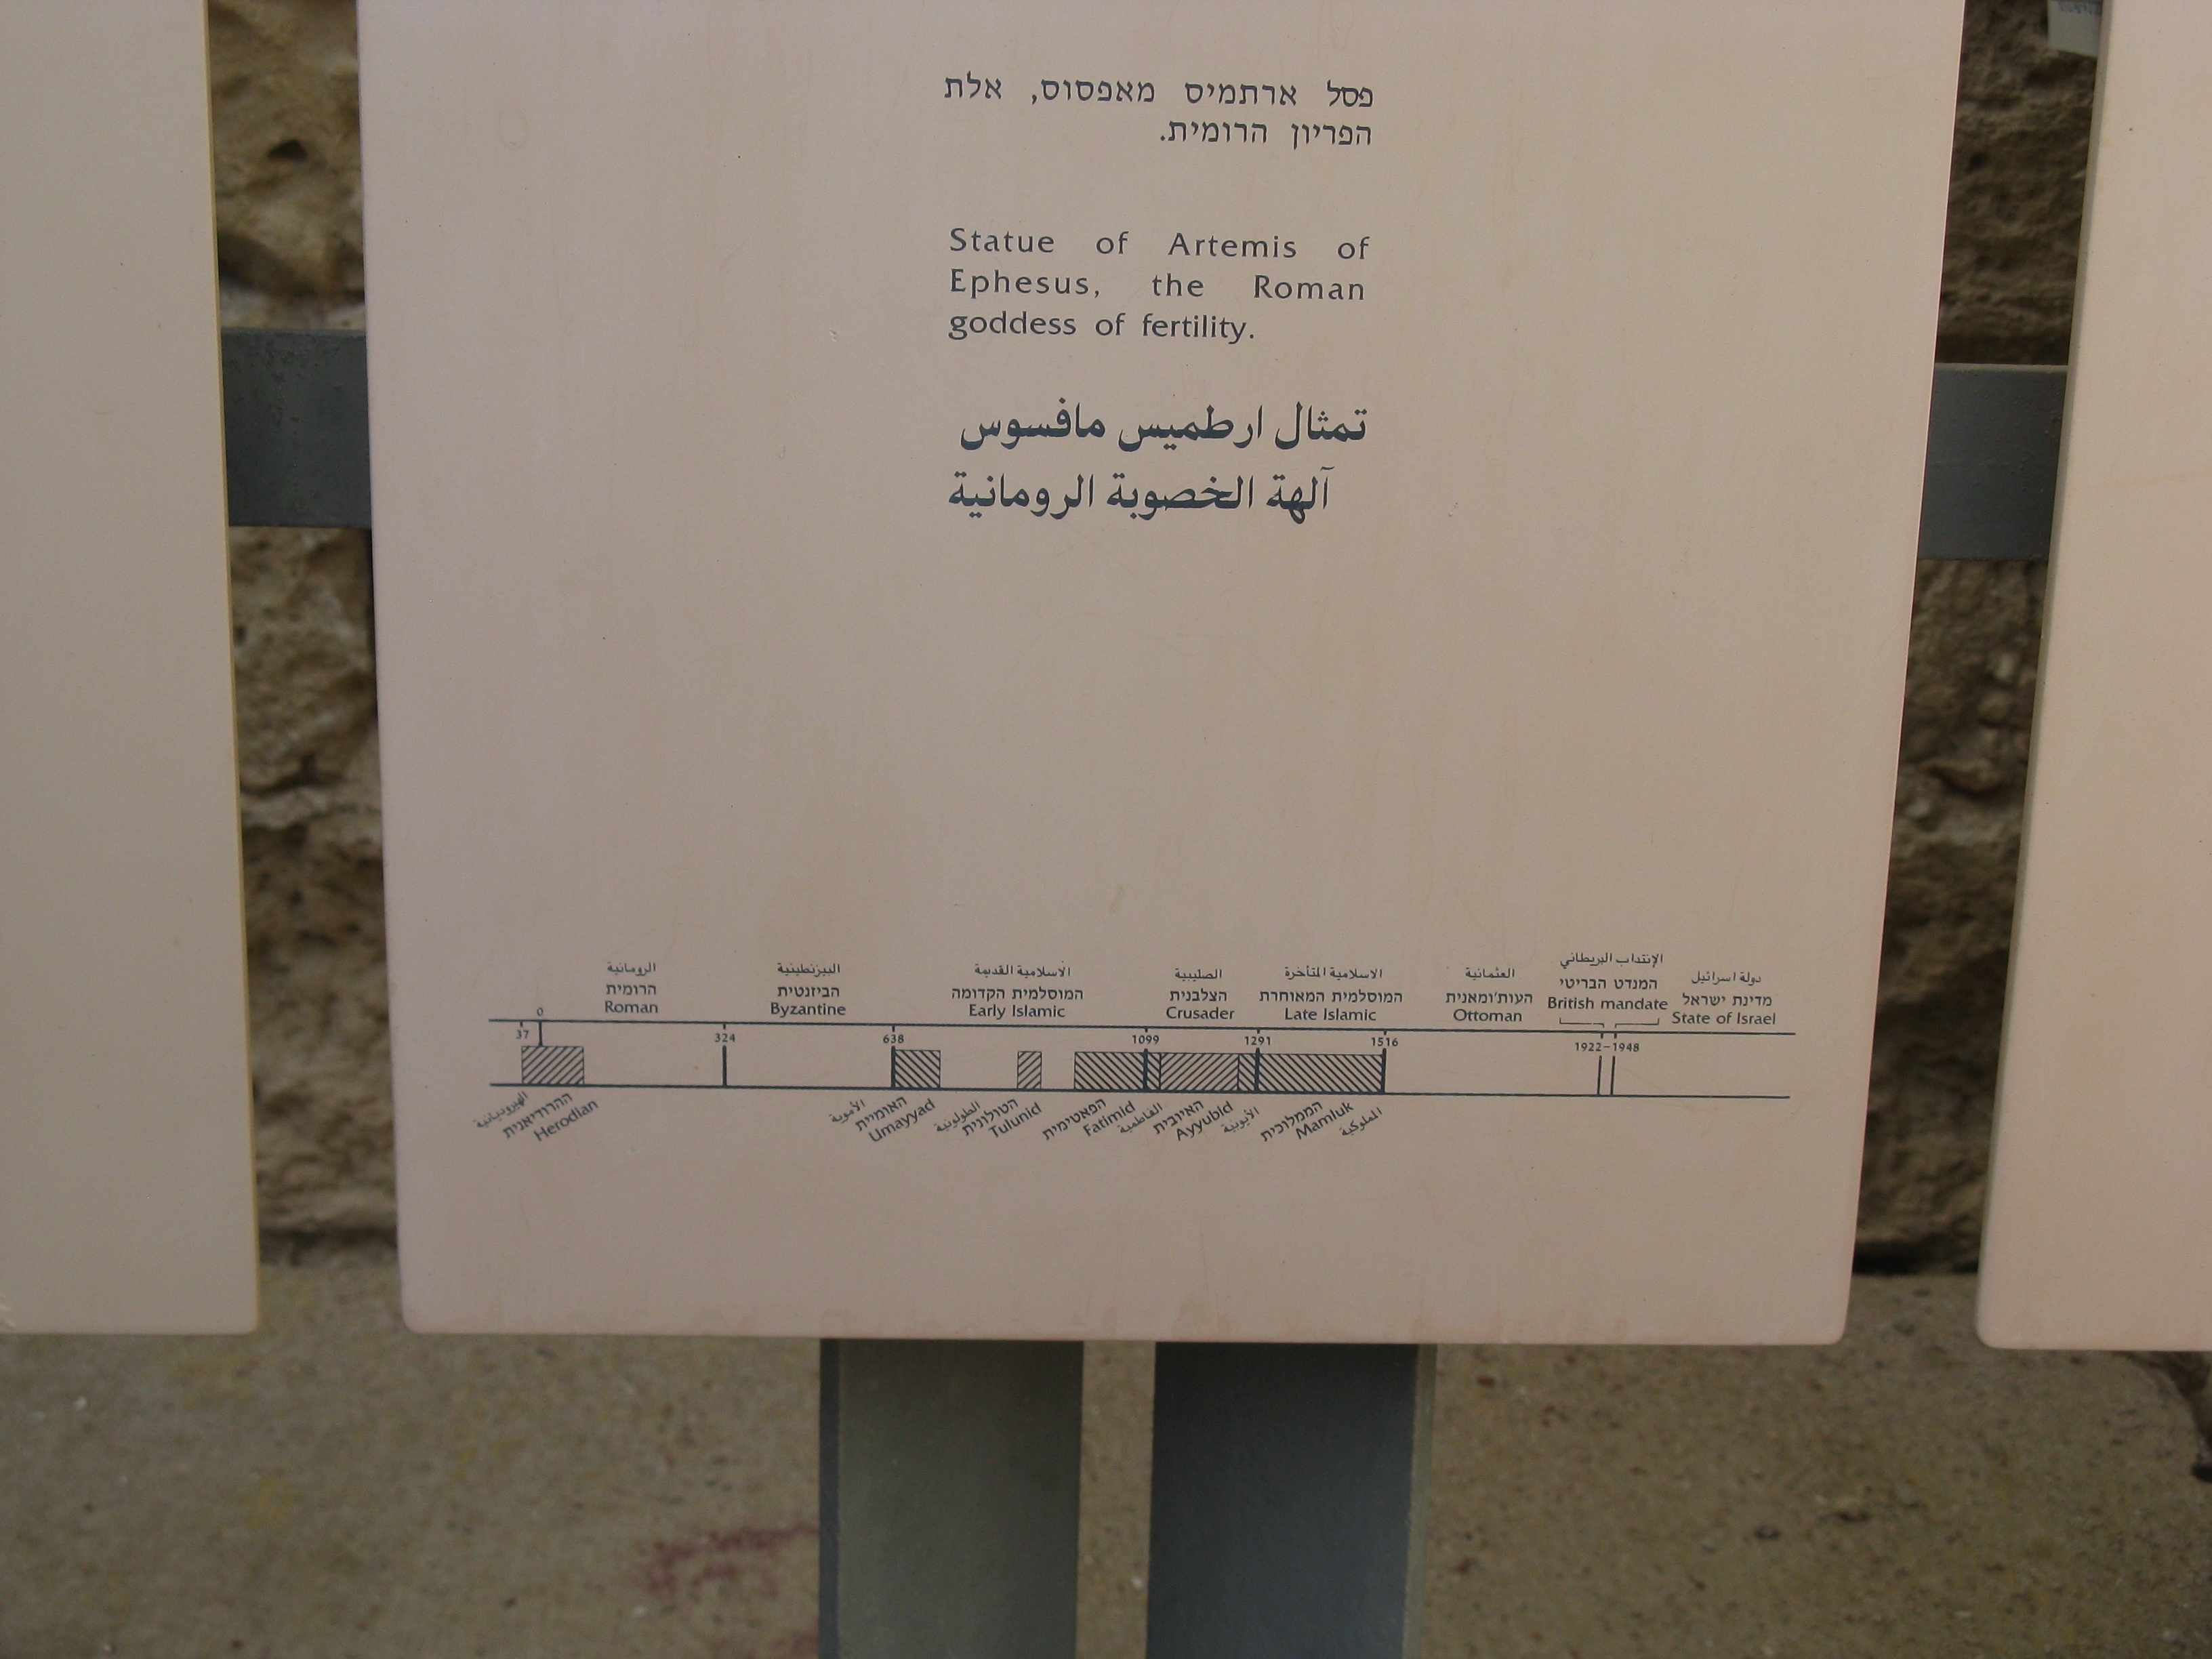 פסל ארתמיס מאפסוס, אלת
הפריון הרומית.
Statue of Artemis of
Ephesus, the Roman
goddess of fertility.
تمثال ارطميس مافسوس
آلهة الخصوبة الرومانية
الرومانية
הרומית
Roman
البيزنطينية
הביזנטית
Byzantine
الاسلامية القديمة
המוסלמית הקדומה
Early Islamic
الصليبية
הצלבנית
Crusader
الاسلامية المتأخرة
המוסלמית המאוחרת
Late Islamic
العثمانية
העות'ומאנית
Ottoman
الإنتداب البريطاني
המנדט הבריטי
British mandate
دولة اسرائيل
מדינת ישראל
State of Israel
37 0 324 638 1099 1291 1516 1922-1948
الهيروديانية
ההרודיאנית
Herodian
الأموية
האומיית
Umayyad
الطولونية
הטולונית
Tulunid
הפאטימית
Fatimid
الفاطمية
האיובית
Ayyubid
الأيوبية
הממלוכית
Mamluk
المملوكية